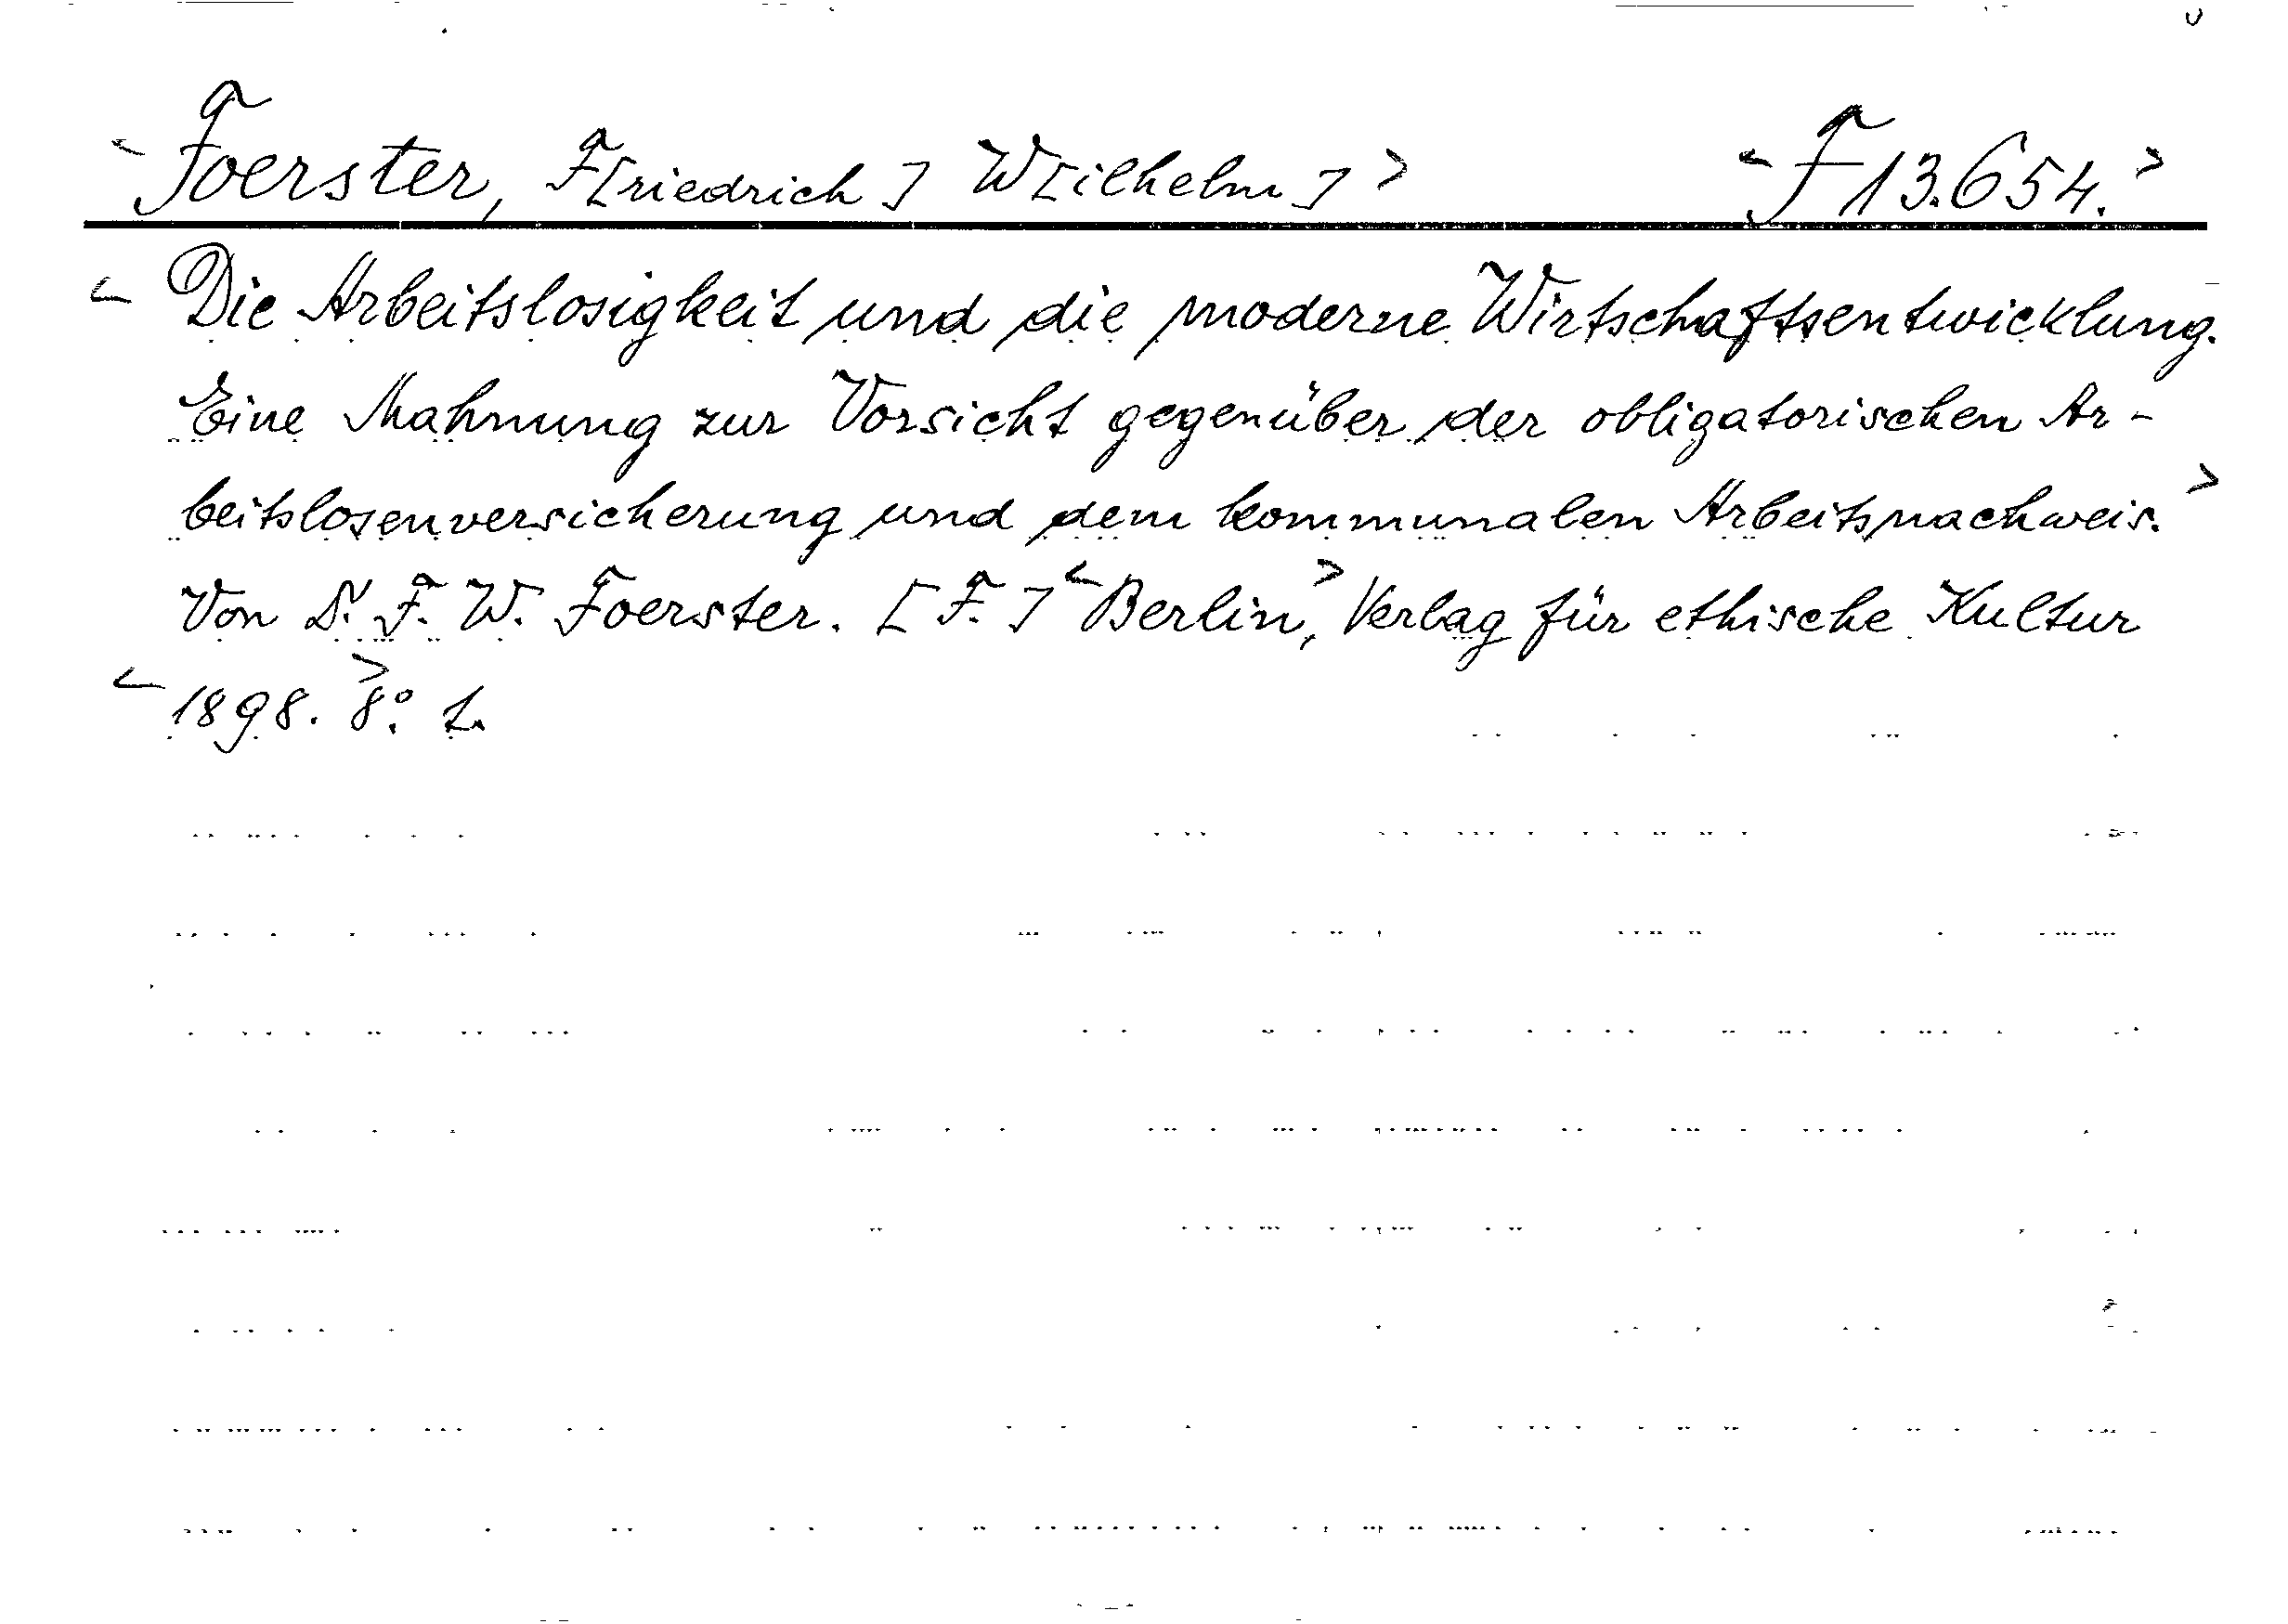 < Foerster, F[riedrich] W[ilhelm] > < F 13.654. >
< Die Arbeitslosigkeit und die moderne Wirtschaftsentwicklung.
Eine Mahnung zur Vorsicht gegenüber der obligatorischen Ar-
beitslosenversicherung und dem kommunalen Arbeitsnachweis. >
Von D. F. W. Foerster. [F.] < Berlin, > Verlag für ethische Kultur
< 1898. > 8°.